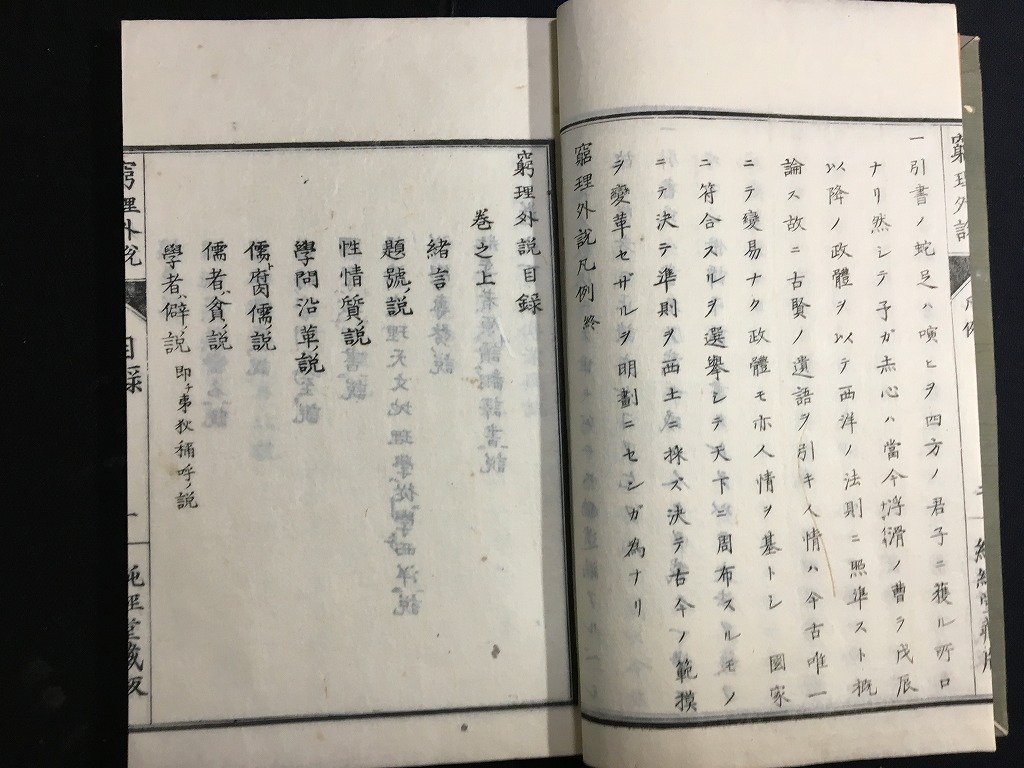 一引書ノ蛇足ハ嗅ヒヲ四方ノ君子ニ獲ル所口
ナリ然シテ子ガ赤心ハ當今浮滑ノ曹ラ戊辰
以降ノ政體ヲ以テ西洋ノ法則ニ照準スト概
論ス故ニ古賢ノ遺語ヲ引キ人情ハ今古唯一
ニテ變易ナク政體モ亦人情ヲ基トシ國家
ニ符合スルヲ選擧シテ天下ニ周布スルモノ
ニテ決テ準則ヲ西土ニ採ズ決テ古今ノ範摸
ヲ變革セザルヲ明劃ニセシガ為ナリ
窮理外説凡例終
窮理外説目録
巻之上
緒言
題號ノ説
性情質ノ説
學問沿革説
儒ト腐儒ノ説
儒者ノ貧ノ説
學者ノ僻ノ説 即チ東狄稱呼ノ説
窮理外説
目録
一
純經堂藏版